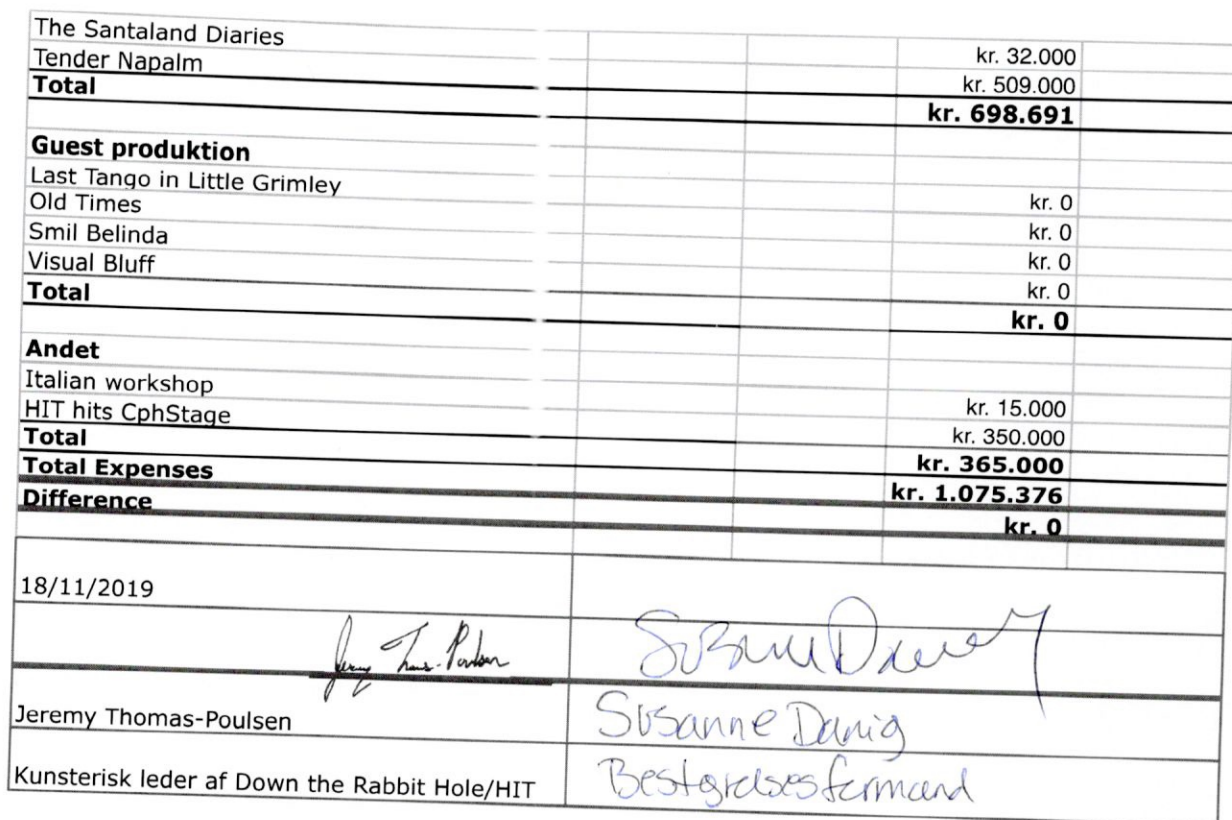 The Santaland Diaries kr. 32.000
Tender Napalm kr. 509.000
Total kr. 698.691
Guest produktion
Last Tango in Little Grimley kr. 0
Old Times kr. 0
Smil Belinda kr. 0
Visual Bluff kr. 0
Total kr. 0
Andet
Italian workshop kr. 15.000
HIT hits CphStage kr. 350.000
Total kr. 365.000
Total Expenses kr. 1.075.376
Difference kr. 0
18/11/2019
Jeremy Thomas-Poulsen Susanne Danig
Kunsterisk leder af Down the Rabbit Hole/HIT Bestyrelsesformand